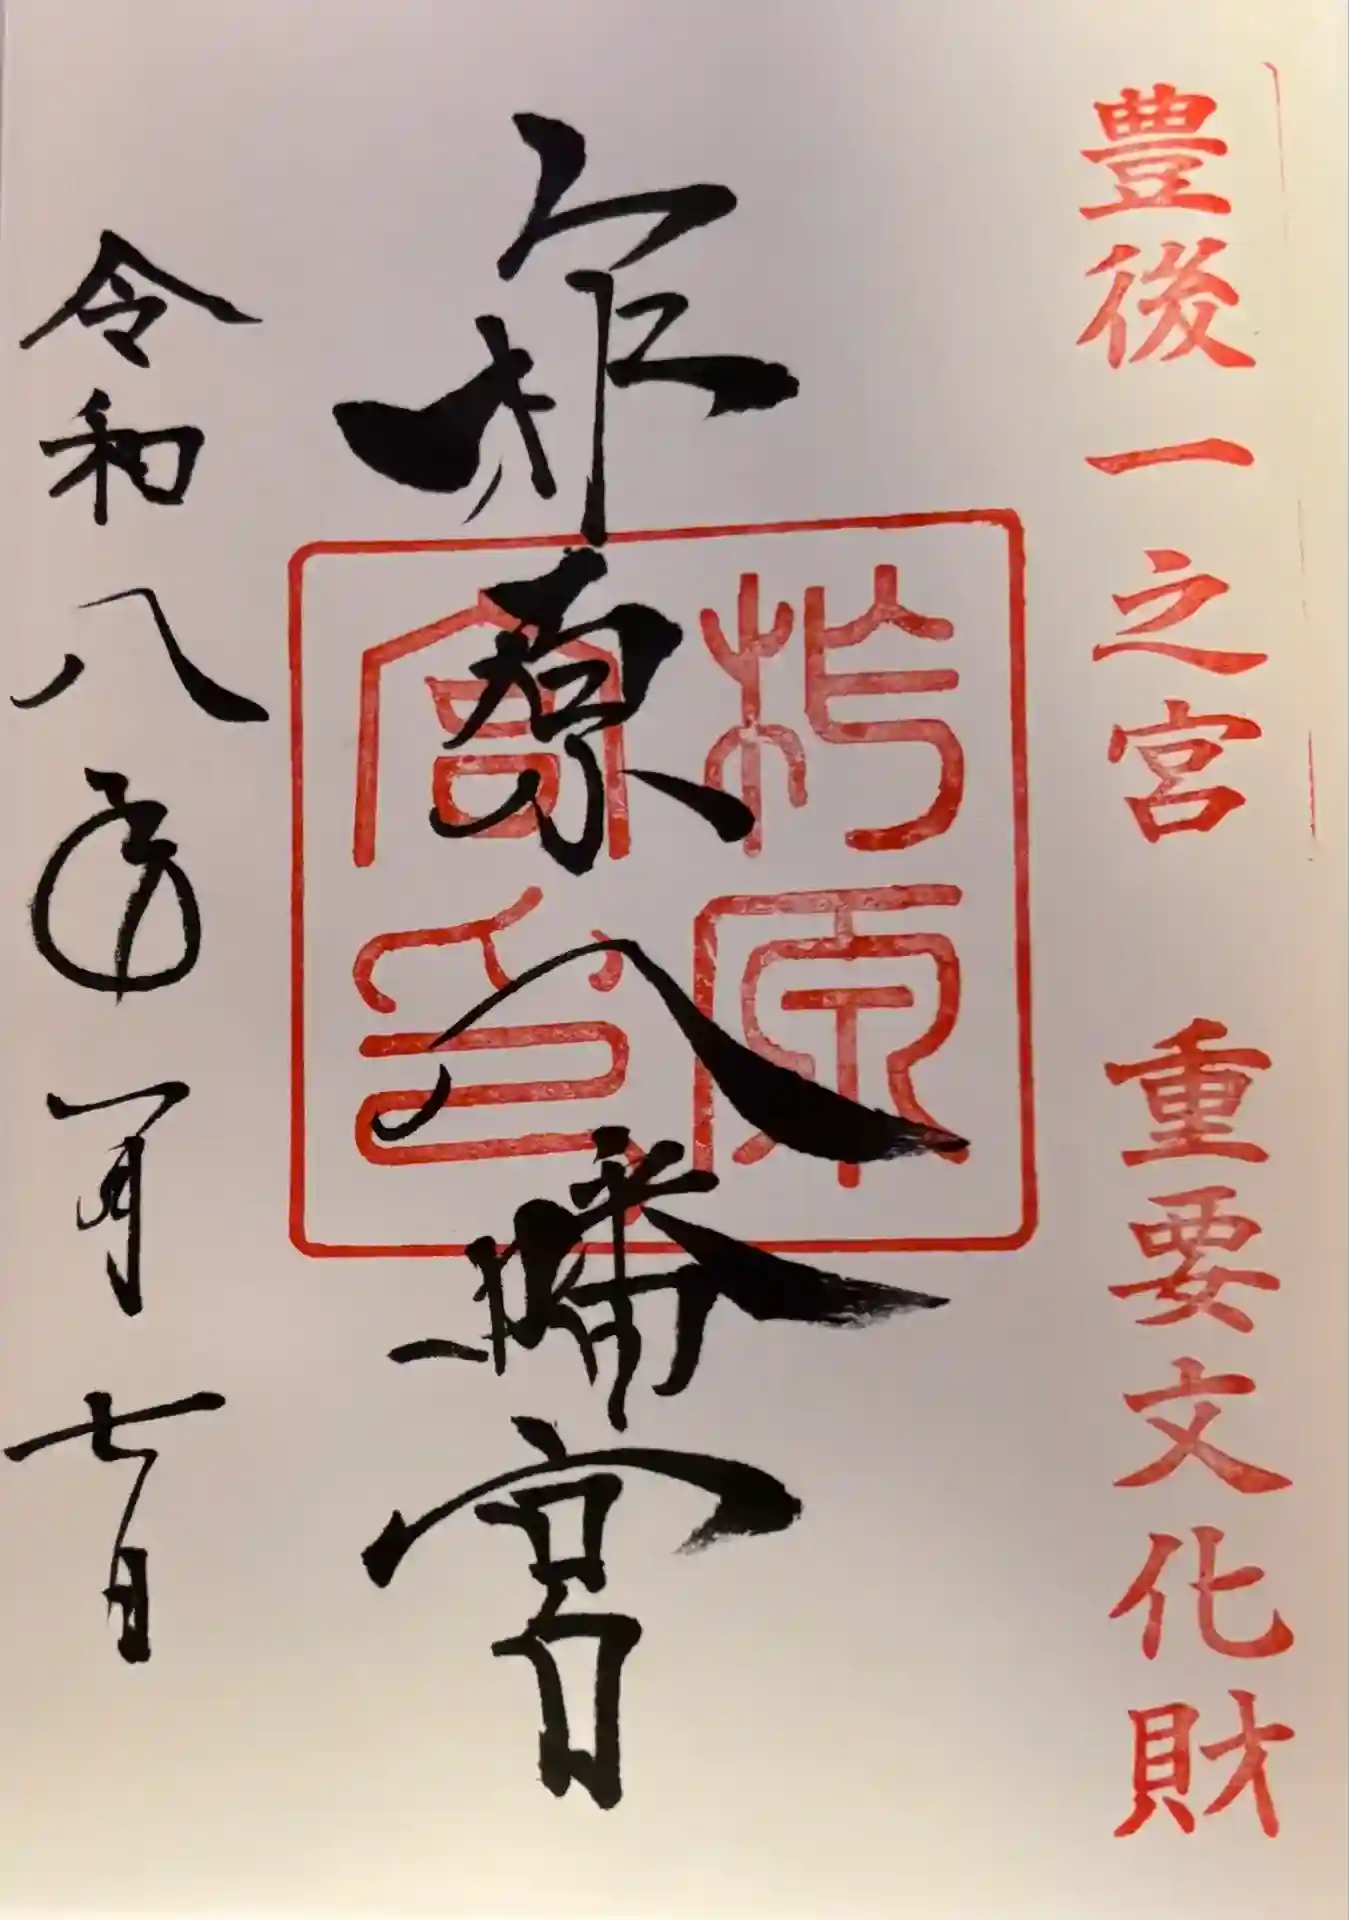 豊後一之宮 重要文化財
柞原八幡宮
柞原
宮印
令和八年一月七日